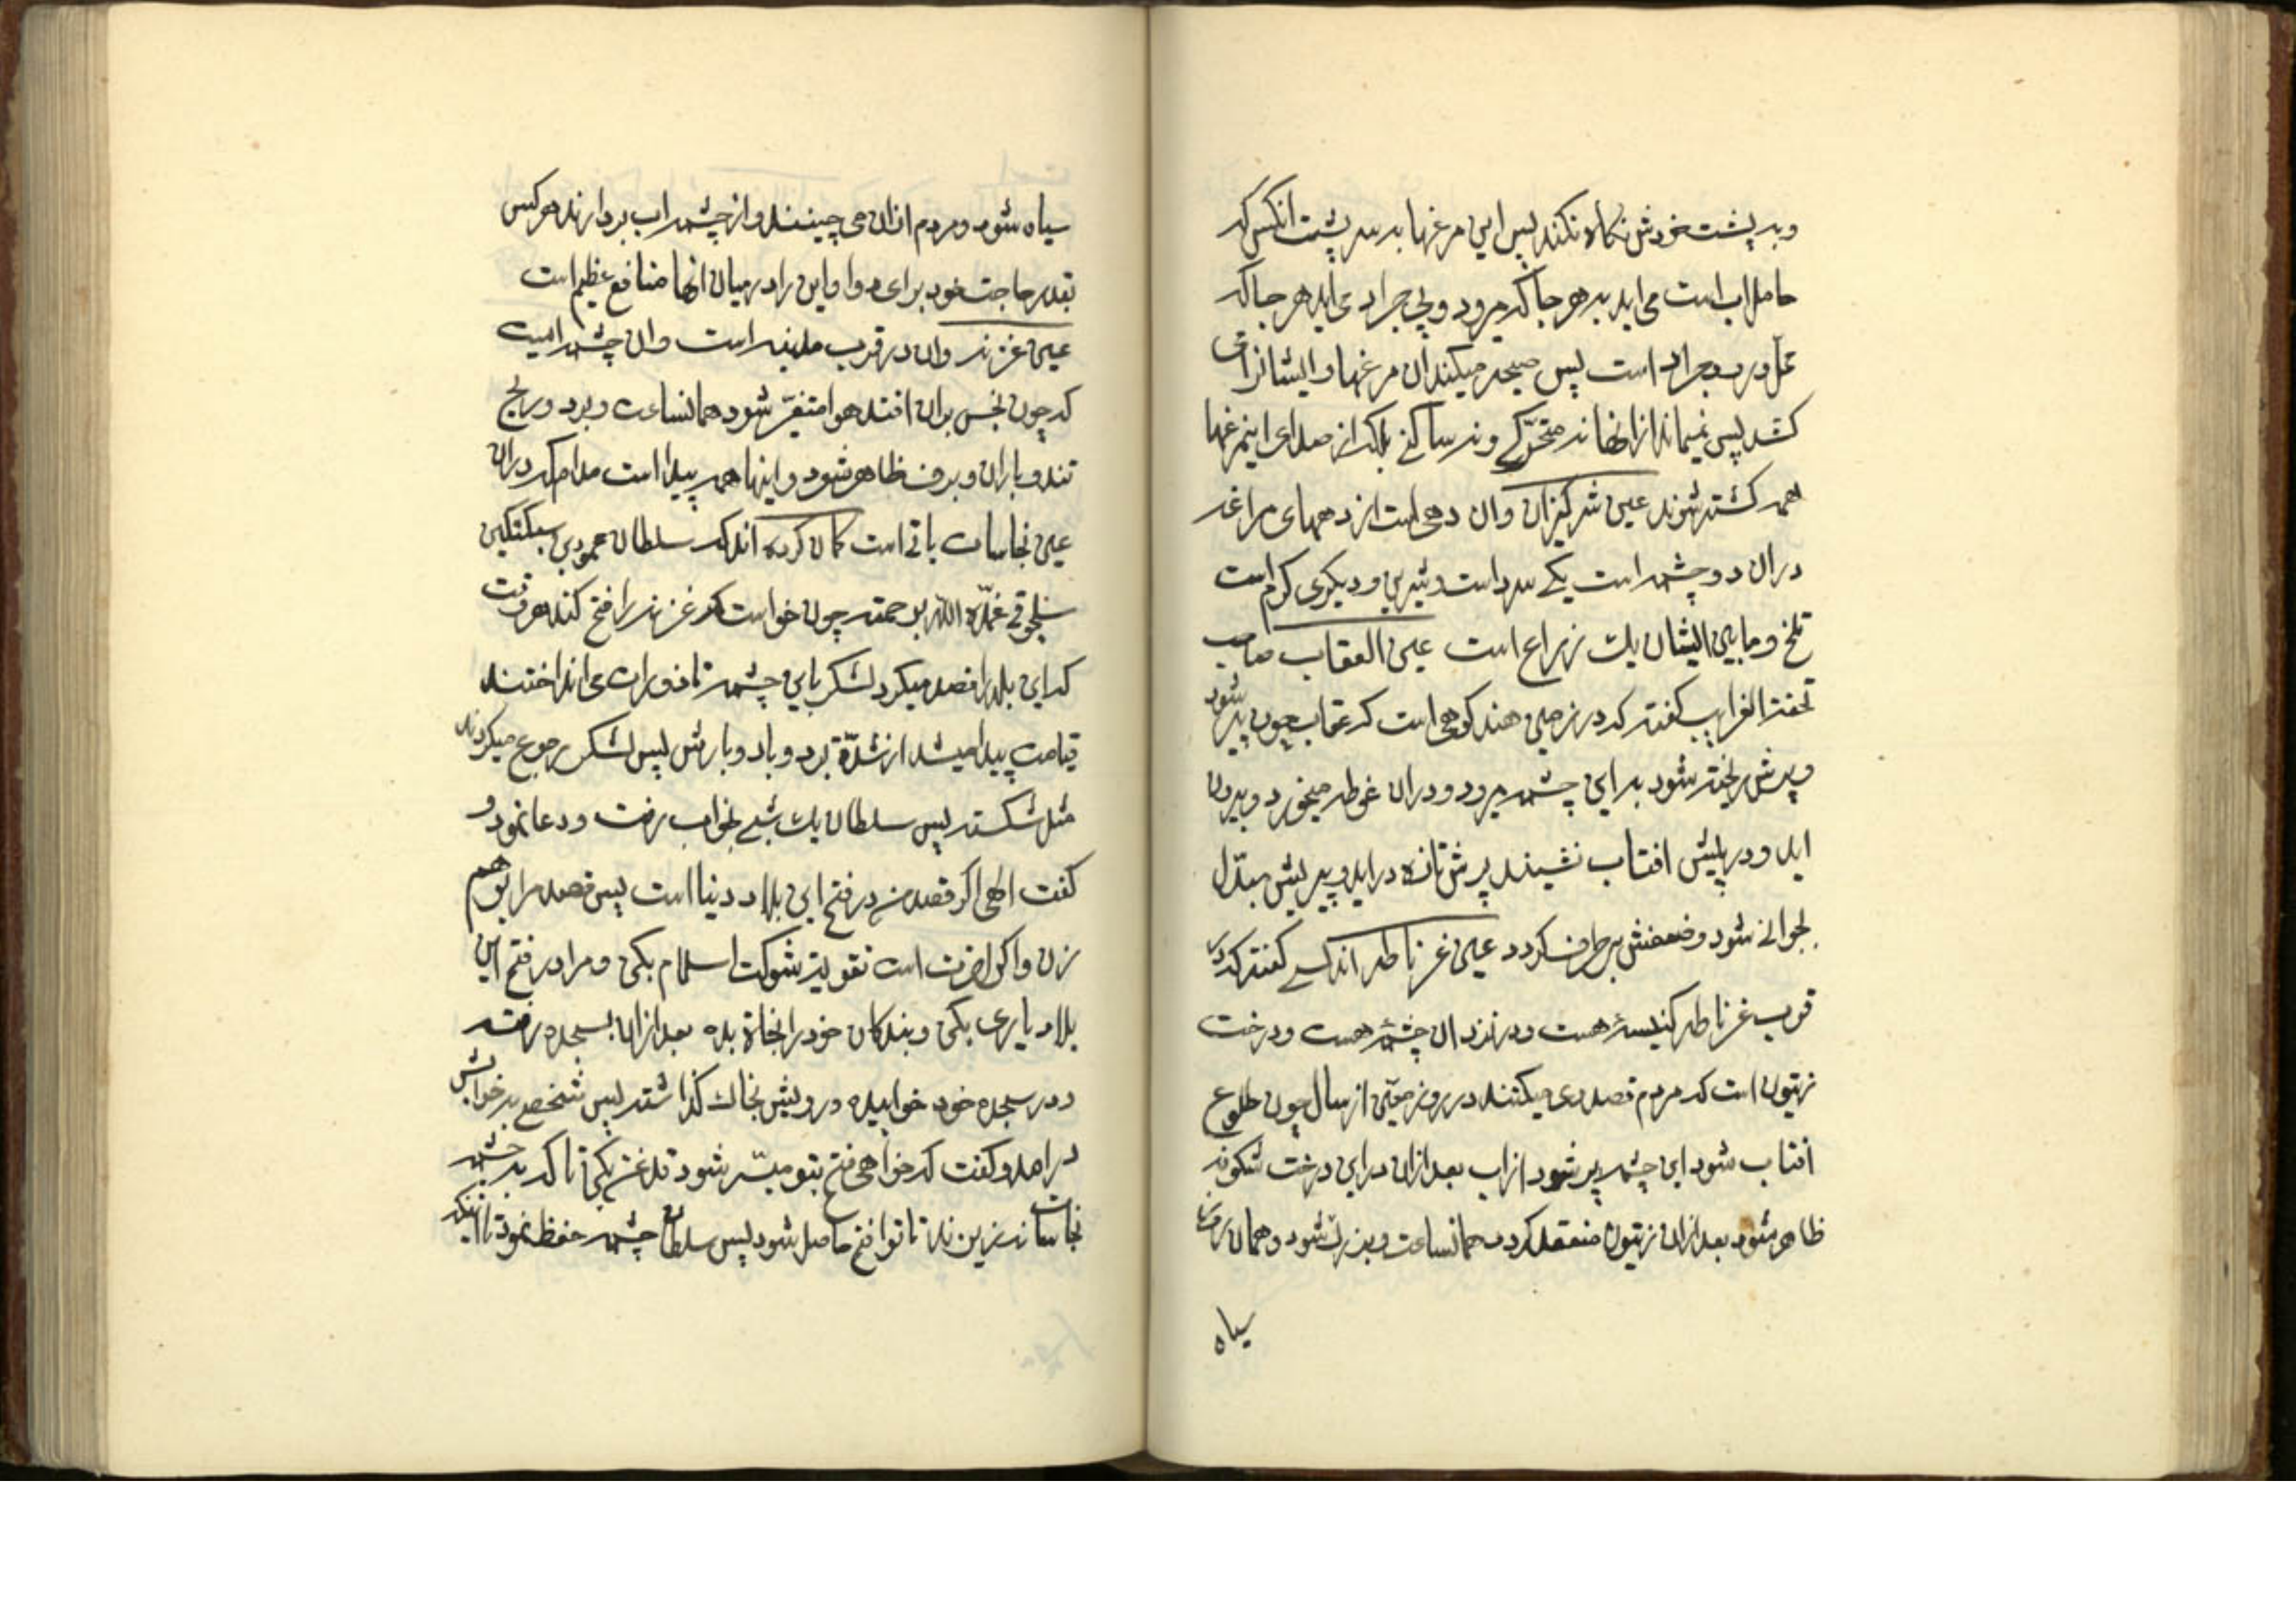 و به پشت خودش نكاه نكند پس این مرغها به سر پشت انكس كه
حامل اب است می اید به هر جا كه میرود و پی جراد می اید هر جا كه
محل ورود جراد است پس صیحه میكند ان مرغها و ایشانرا می
كشد پس نمیماند از انها نه متحرّكی و نه ساكنی بلكه از صدای اینمرغها
همه كشته شوند عین شركیزان وان دهی است از دههای مراغه
دران دو چشمه است یكی سرد است و شیرین و دیكری كرم است
تلخ و مابین ایشان یك زراع است عین العقاب صاحب
تحفة الغرایب كفته كه در زمین هند كوهی است كه عقاب چون پیر شود
و پرش ریخته شود به این چشمه میرود و دران غوطه میخورد و بیرون
اید و در پیش افتاب نشیند پرش تازه دراید و پیریش مبدّل
بجوانی شود و ضعفش بر طرف كردد عین غرناطه اندلسی كفته كه در
قریب غرناطه كنیسهٔ هست و در نزد ان چشمهٔ هست و درخت
زیتون است كه مردم قصد وی میكنند در روز معیّن از سال چون طلوع
افتاب شود این چشمه پر شود از اب بعد ازان دراین درخت شكوفه
ظاهر شود بعد ازان زیتون منعقد كردد همانساعت و بزرك شود و همان روز
سیاه
سیاه شود و مردم ازان می چینند و از چشمه اب بردارند هر كس
بقدر حاجت خود برای دوا و این را در میان انها منافع عظیم است
عین غزنه وان در قرب مدینه است وان چشمه ایست
كه چون نجس بران افتد هوا متغیّر شود همانساعت و برد و ریح
تند و باران و برف ظاهر شود و اینها همه پیدا است مدام كه دران
عین نجاسات باقی است كمان كرده اند كه سلطان محمود بن سبكتكین
سلجوقی غمّده الله برحمته چون خواست كه غزنه را فتح كند هر وقت
كه این بلد را قصد میكرد لشكر باین چشمه قاذورات می انداختند
قیامت پیدا میشد از شدّة برد و باد و بارش پس لشكر رجوع میكردند
مثل شكسته پس سلطان یك شبی بخواب رفت و دعا نمود و
كفت الهی اكر قصد من در فتح این بلاد دنیا است پس قصد مرا بر هم
زن و اكر اخرت است تقویة شوكت اسلام بكن و مرا در فتح این
بلاد یاری بكن و بندكان خود را نجاة بده بعد ازان بسجده رفته
و در سجده خود خوابیده و رویش بخاك كذاشته پس شخصی بر خوابش
درامد و كفت كه خواهی فتح بتو میسّر شود قدغن بكن تا كه به چشمه
نجاسات نریزند تا ترا فتح حاصل شود پس سلطان چشمه حفظ نمود تا اینكه